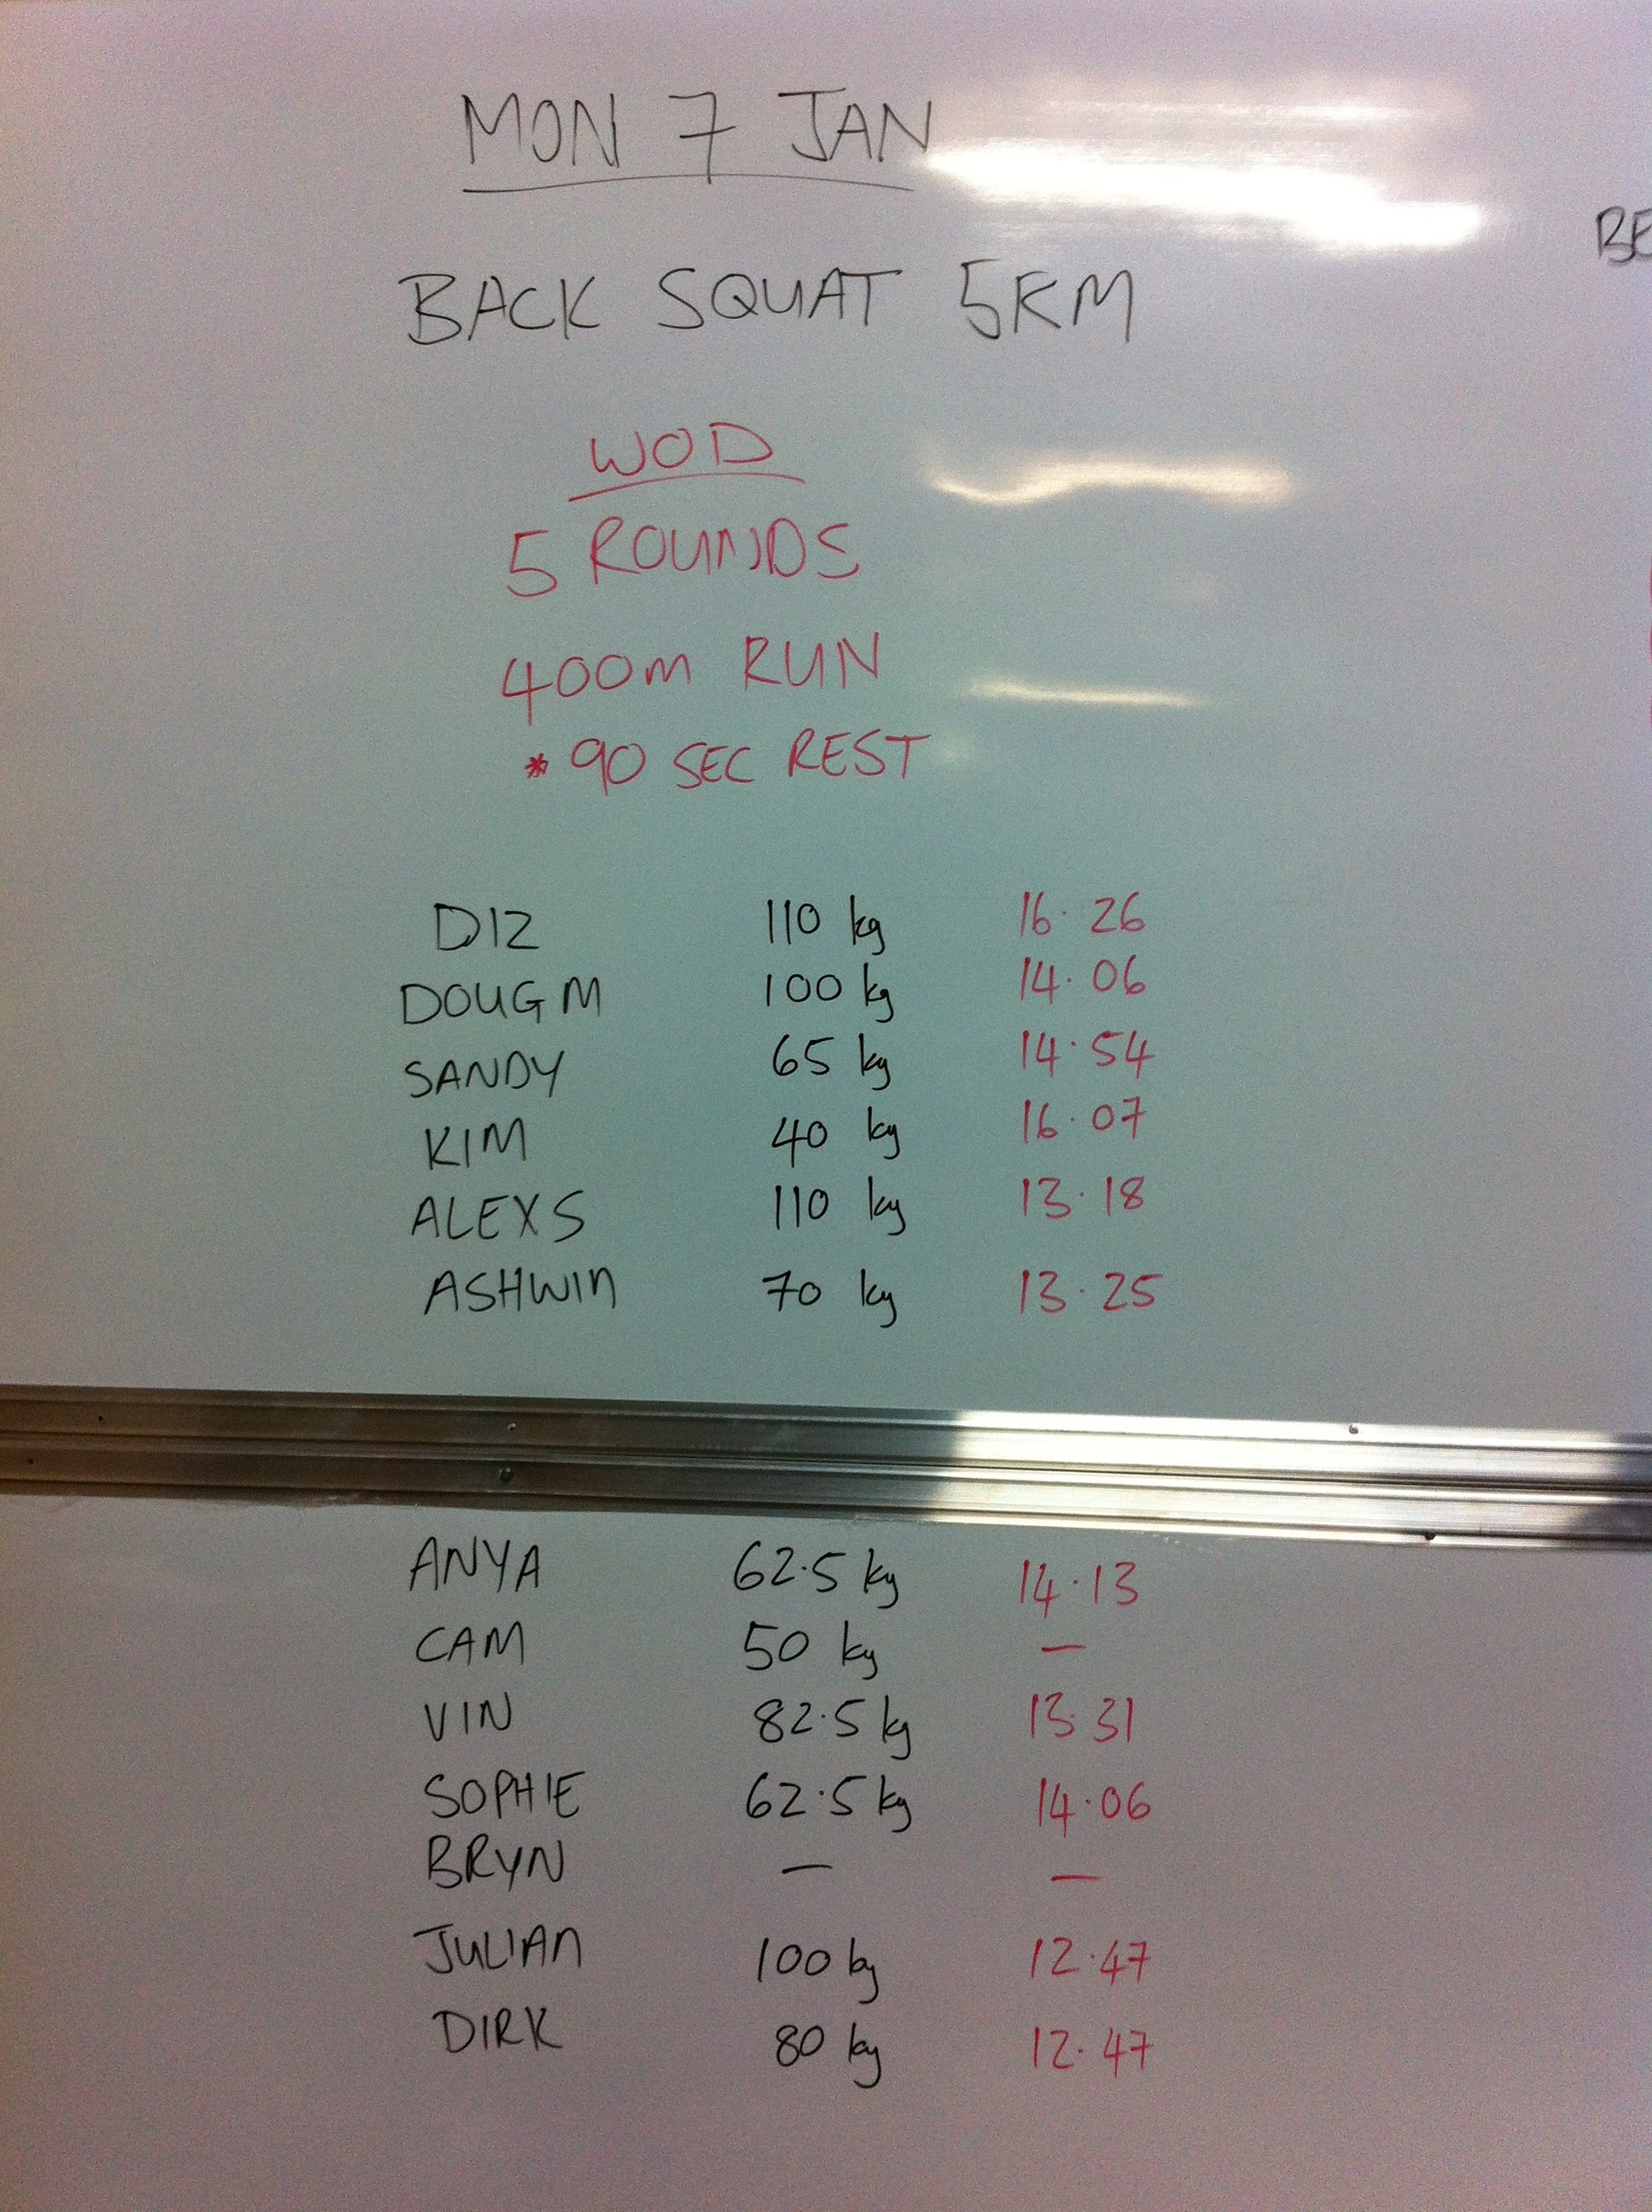 MON 7 JAN
BACK SQUAT 5RM
WOD
5 ROUNDS
400m RUN
* 90 SEC REST
DIZ 110 kg 16.26
DOUG M 100 kg 14.06
SANDY 65 kg 14.54
KIM 40 kg 16.07
ALEX S 110 kg 13.18
ASHWIN 70 kg 13.25
ANYA 62.5 kg 14.13
CAM 50 kg —
VIN 82.5 kg 13.31
SOPHIE 62.5 kg 14.06
BRYN — —
JULIAN 100 kg 12.47
DIRK 80 kg 12.47